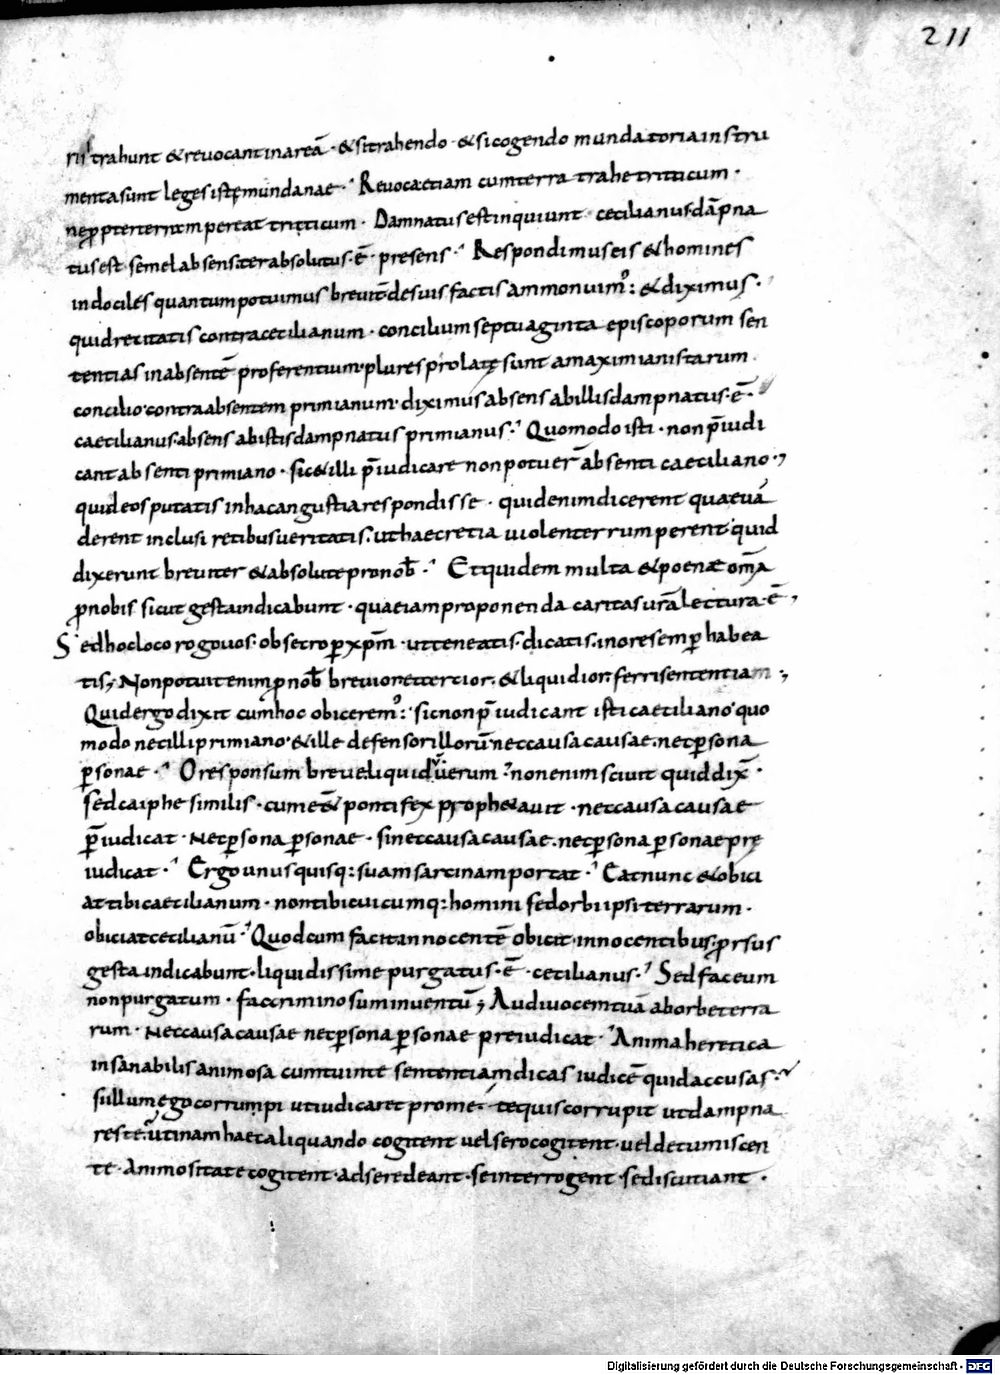 211
rii trahunt & reuocant in areā · & si trahendo · & si cogendo mundatoria instru
menta sunt leges istę mundanae · Reuoca etiam cum terra trahe triticum ·
ne ꝓpter terram pereat triticum · Damnatus est inquiunt · cecilianus dāpna
tus est semel absens ter absolutus · ē · presens · Respondimus eis & homines
indociles quantum potuimus breuit̄ de suis factis ammonuim᾽ : & diximus ·
quid recitatis contra cecilianum · concilium septuaginta episcoporum sen
tentias in absentē proferentium · plures prolatę sunt a maximianistarum
concilio · contra absentem primianum · diximus absens ab illis dampnatus · ē ·
caecilianus · absens ab istis dampnatus primianus · Quomodo isti · non p̄iudi
cant absenti primiano · sic & illi p̄iudicare non potuer̄ absenti caeciliano ·,
quid eos putatis in hac angustia respondisse · quid enim dicerent qua euā
derent inclusi retibus ueritatis · ut haec retia uiolenter rumperent quid
dixerunt breuiter & absolute pro nob̄ · Et quidem multa & poenae om̄a
ꝓ nobis sicut gesta indicabunt · quae iam proponenda caritas ur̄a lectura · ē ,
Sed hoc loco rogo uos · obsecro ꝑ xp̄m · ut teneatis · dicatis · in ore semꝑ habea
tis ; Non potuit enim ꝓ nob̄ breuior & certior · & liquidior ferri sententiam ;
Quid ergo dixit cum hoc obicerem᾽ : sic non p̄iudicant isti caeciliano quo
modo nec illi primiano · & ille defensor illorū nec causa causae · nec ꝑsona
ꝑsonae · O responsum breue liquidū uerum · non enim sciuit quid dix̄ ·
sed caiphe similis · cum eē & pontifex proph&auit · nec causa causae
p̄iudicat · nec ꝑsona ꝑsonae · si nec causa causae · nec ꝑsona ꝑsonae prę
iudicat · Ergo unusquisq: suam sarcinam portat · Eat nunc & obici
at tibi caecilianum · non tibi cuicumq: homini sed orbi ipsi terrarum ·
obiciat cecilianū · Quod cum facit innocentē obicit innocentibus · ꝓrsus
gesta indicabunt · liquidissime purgatus · ē · cecilianus · Sed fac eum
non purgatum · fac criminosum inuentū ; Audi uocem tuā ab orbe terra
rum · nec causa causae nec ꝑsona ꝑsonae preiudicat · Anima heretica
insanabilis animosa cum tuimet sententiam dicas iudicē quid accusas ·
si illum ego corrumpi ut iudicaret pro me · te quis corrupit ut dampna
res te · utinam haec aliquando cogitent uel sero cogitent · uel detumiscen
te · animositate cogitent · ad se redeant · se interrogent · se discutiant ·
Digitalisierung gefördert durch die Deutsche Forschungsgemeinschaft - DFG